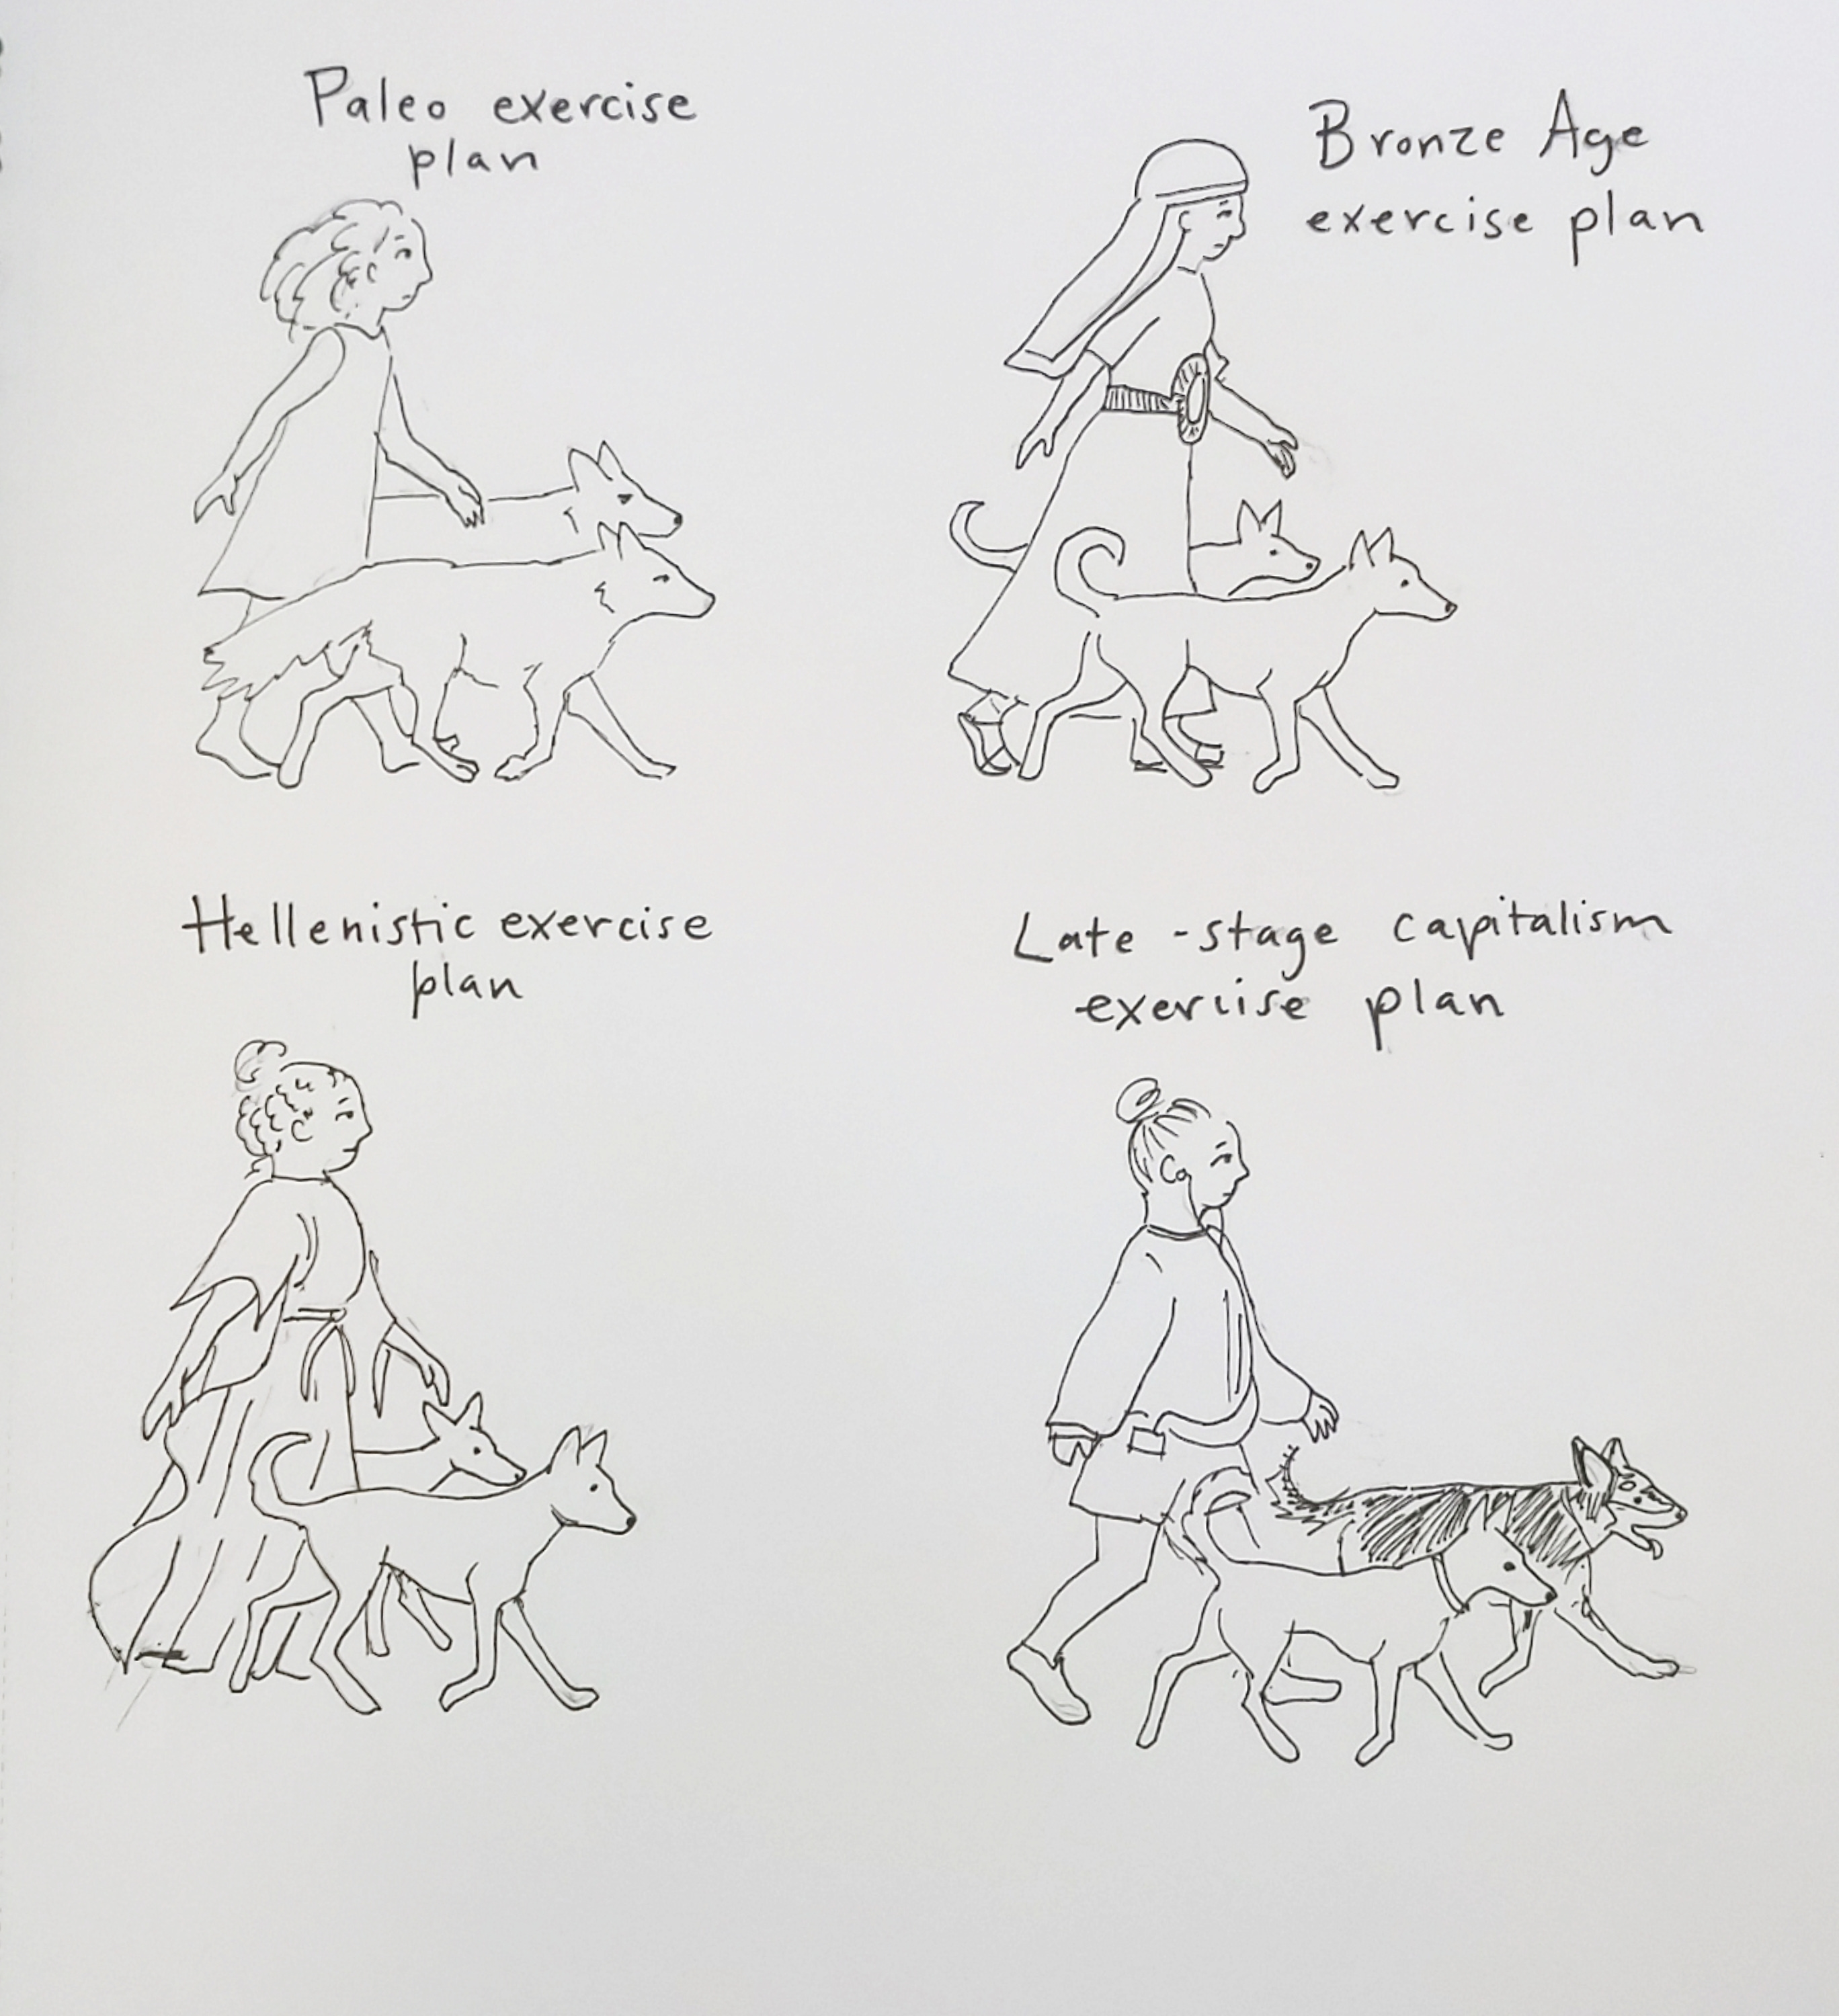 Paleo exercise
plan
Bronze Age
exercise plan
Hellenistic exercise
plan
Late-stage capitalism
exercise plan